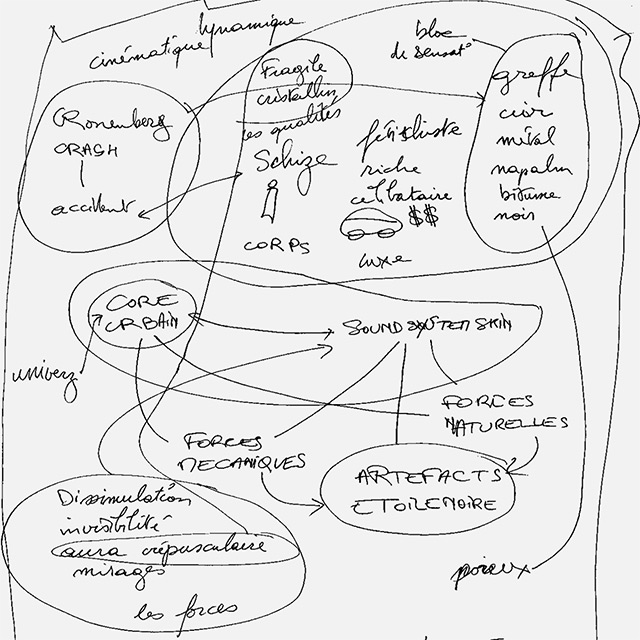 dynamique
cinématique
bloc
de sensat°
Fragile
cristallin
les qualités
Schize
CORPS
fétichiste
riche
célibataire
$$
luxe
greffe
cuir
métal
napalm
bitume
noir
Cronenberg
CRASH
accident
CORE
URBAIN
SOUND SYSTEM SKIN
univerz
FORCES
NATURELLES
FORCES
MECANIQUES
ARTEFACTS
ETOILE NOIRE
Dissimulation
invisibilité
aura crépusculaire
mirages
les forces
poreux